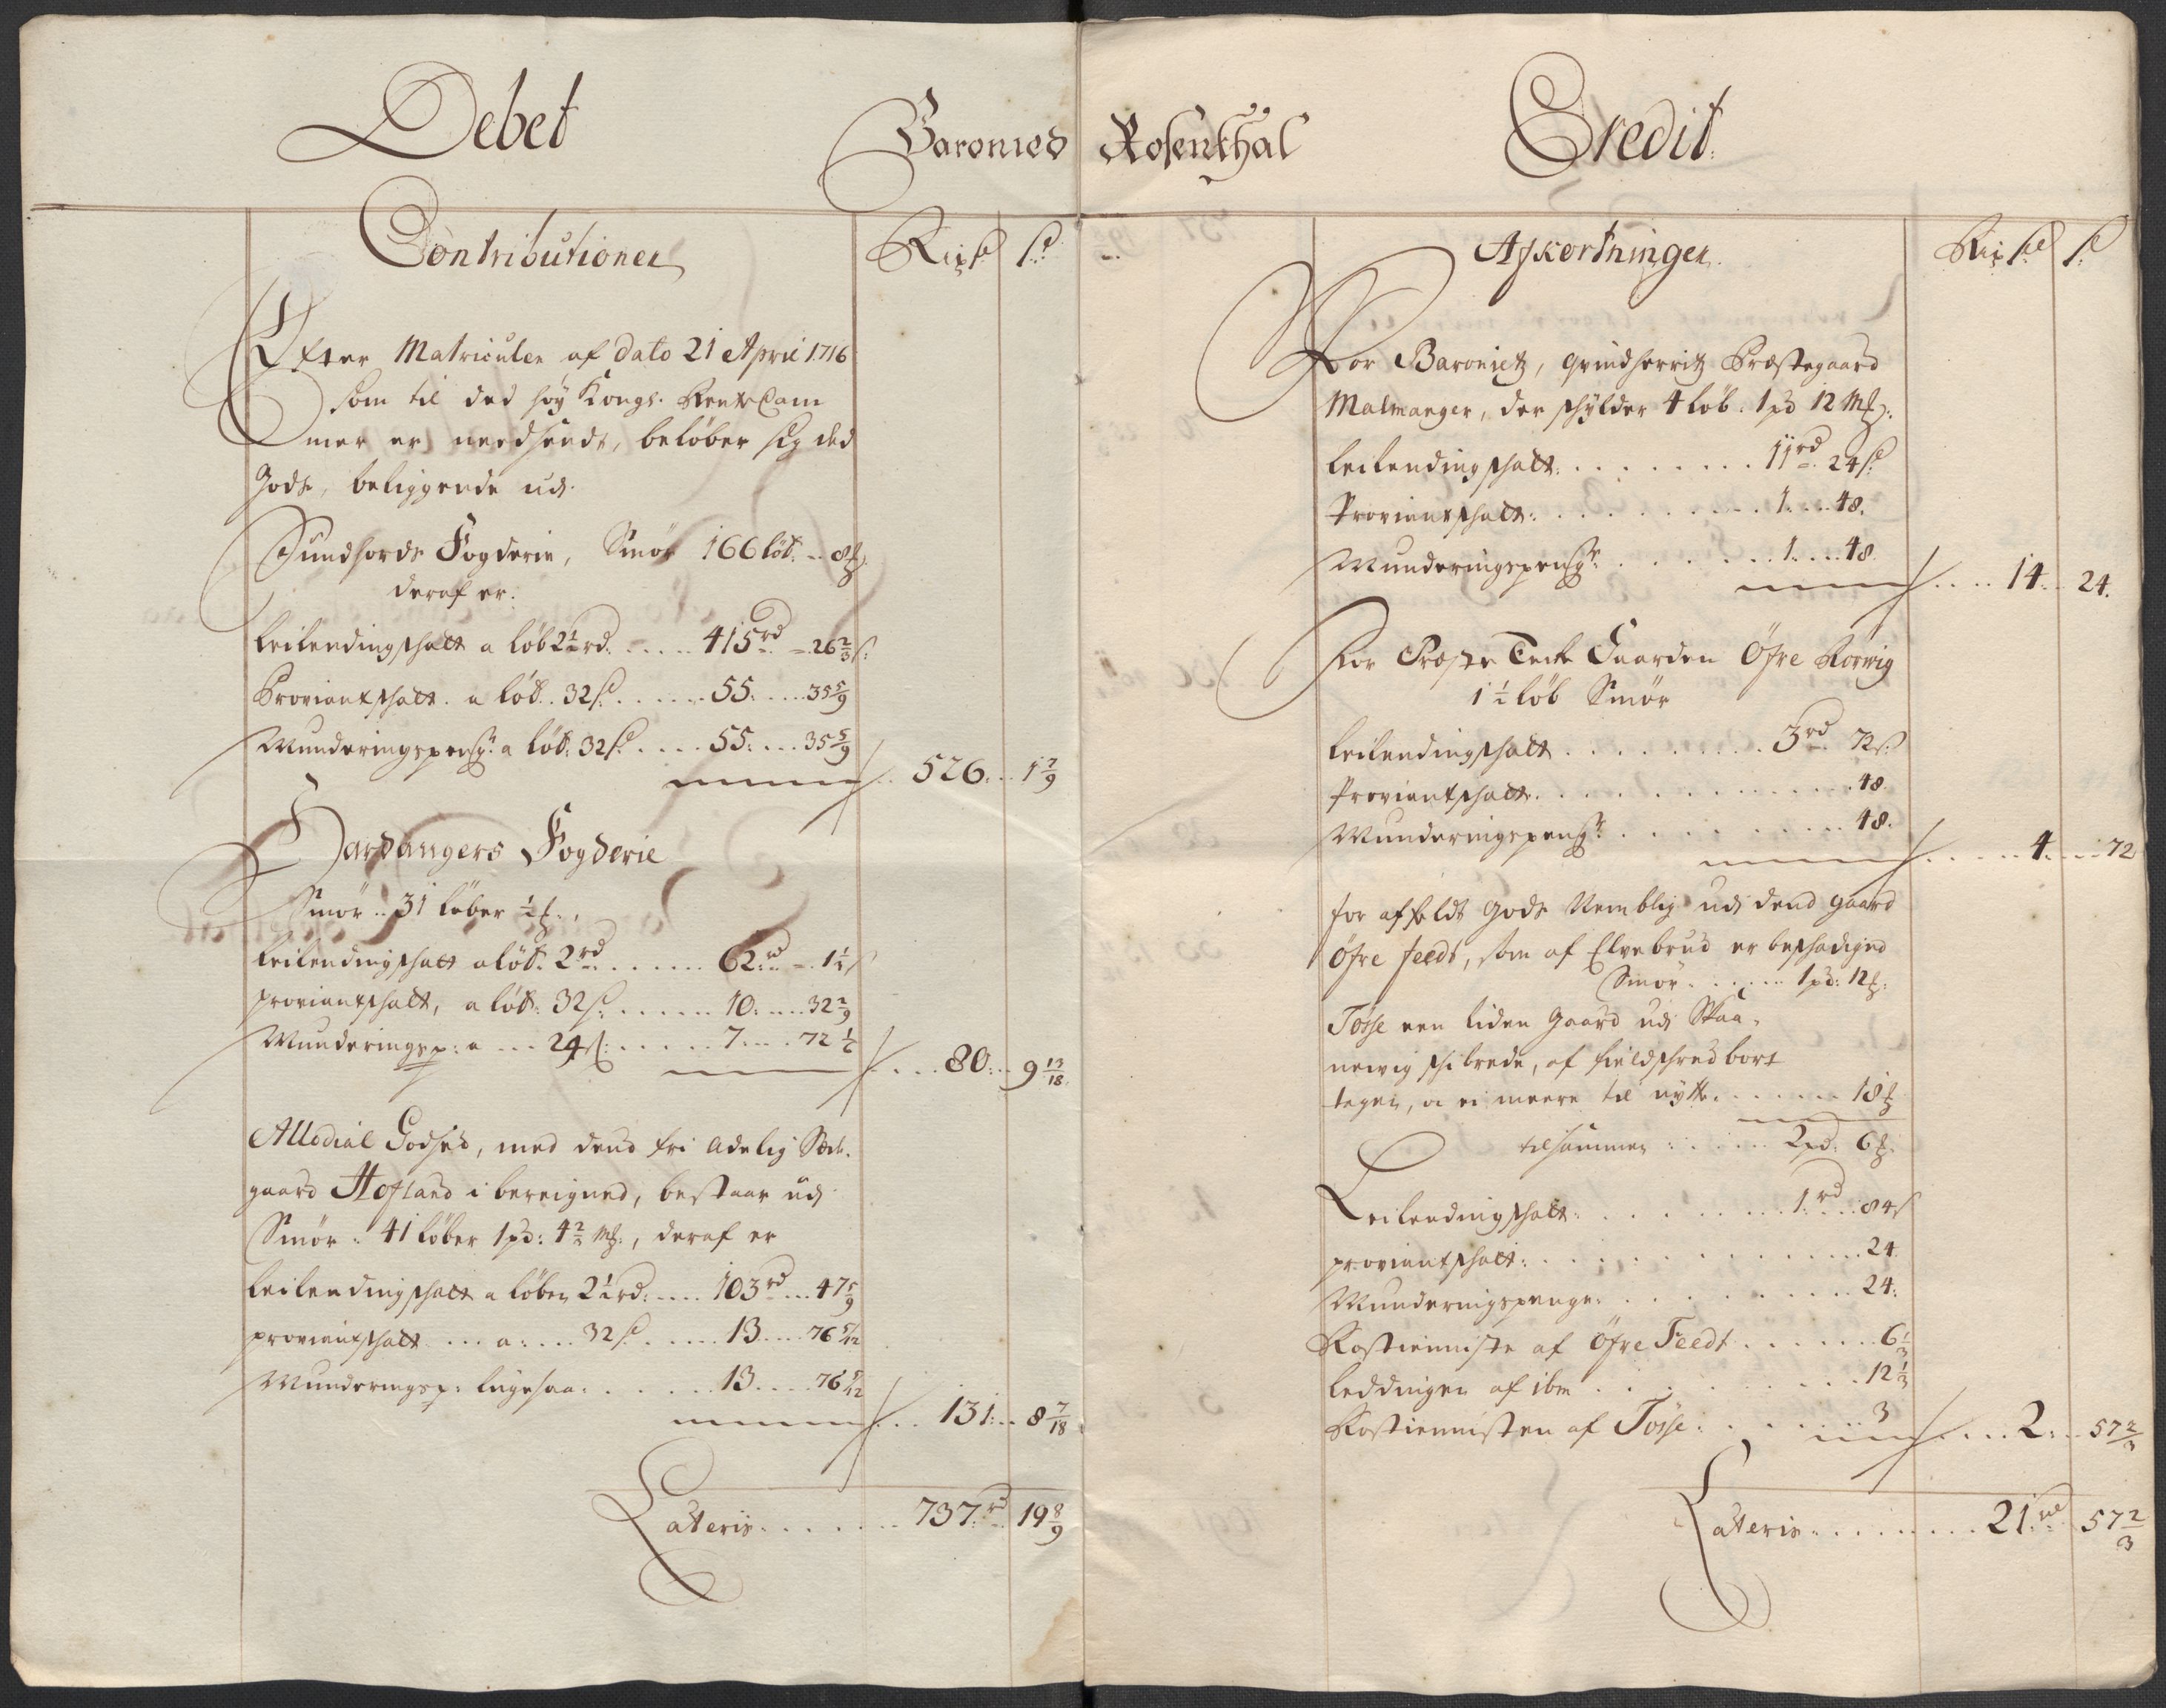 Debet
Baroniet Rosenthal
Credit
Contributioner
Rix s.
Efter Matriculen af dato 21 April 1716
som til det høy Kongl. Rente Cam
mer er needsendt, beløber sig det
Gods, beliggende udj
Sundhords Fogderie, Smør 166 løb. - 8 ℔
deraf er.
Leilendingschatt a løb 2½ rd. . . . . 415 rd - 26 2/3 s.
Proviantschatt. a løb. 32 s. . . . . . 55. . . . 35 5/9
Munderingspeng: a løb: 32 s. . . . . 55. . . . 35 5/9
526. . . 1 7/9
Hardangers Fogderie
Smør .. 31 Løber ½ ℔.,
Leilendingschatt a løb. 2 rd . . . . . . 62. rd - 1 ¼ s
proviantschatt, a løb. 32 s. . . . . . . 10. . . . 32 2/9
Munderingsp: a . . . 24 s: . . . . . 7. . . . 72 ¼
. . . 80. . . 9 13/18.
Allodial Godset, med dend fri Adelig Sæde-
gaard Hofland i bereignet, bestaar udj
Smør .. 41 Løber 1 pd: 4 2/2 m℔., deraf er
Leilendingschatt a Løben 2½ rd: . . . . 103 rd . . . 47 5/9
proviantschatt . . . a: . . . 32 s. . . . . . 13. . . . 76 5/12
Munderingsp: ligesaa: . . . . . . 13. . . . 76 5/12
. . . 131: . . 8 7/18
Lateris . . . . . . . . 737. rd 19 8/9
Afkortninger
Rix s.
For Baroniets, Qvindherrits Præstegaard
Malmanger, der schylder 4 løb: 1 pd 12 m℔:
Leilendingschatt: . . . . . . . . 11 rd 24 s.
Proviantschatt: . . . . . . . . . . 1. . . . 48.
Munderingspeng: . . . . . . . 1. . . . 48.
. . . . 14. . 24.
For Præste Encke Gaarden Øfre Rørvig
1½ løb Smør
Leilendingschatt . . . . . . . . . 3 rd 72 s.
Proviantschatt. . . . . . . . . . . . . . 48.
Munderingspeng: . . . . . . . . . . 48.
. . . . . 4. . . . 72
for affeldt Gods Nemblig udj dend gaard
Øfre feedt, som af Elvebrud er beschadiget
Smør . . . . . . 1 pd: 12 ℔:
Tosse een liden Gaard udj Skaa-
nevig schibrede, af fieldschred bort
tagen, oc ei meere til nytte. . . . . . . 18 ℔
tilsammen : . . . . . 2 pd: 6 ℔.
Leilendingschatt: . . . . . . . . . 1. rd . . . 84 s
proviantschatt: . . . . . . . . . . . . . . 24.
Munderingspenge: . . . . . . . . . 24:
Rostienniste af Øfre Feedt . . . . . . 6 1/3
leddingen af ibm . . . . . . . . . 12 1/3
Rostiennisten af Tosse: . . . . . . . 3
. . . . 2. . . 57 2/3
Lateris . . . . . . . . . 21. rd 57 2/3